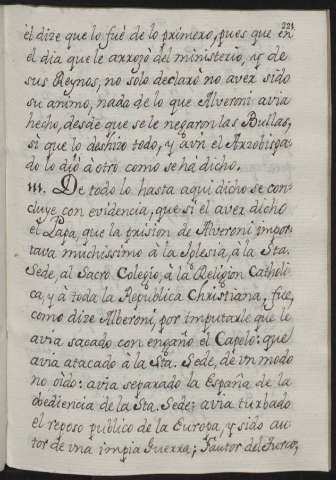 221
èl dize que lo fuè de lo primero, pues que en
el dia que le arrojò del ministerio, y de
sus Reynos, no solo declarò no aver sido
su animo, nada de lo que Alveroni avia
hecho, desde que se le negaron las Bullas,
si que lo deshizo todo, y aun el Arzobispa-
do lo diò à otro como se ha dicho.
111. De todo lo hasta aqui dicho se con-
cluye con evidencia, que si el aver dicho
el Papa, que la prision de Alveroni impor-
tava muchissimo à la Iglesia, à la Sta.
Sede, al Sacro Colegio, à la Religion Catholi-
ca, y à toda la Republica Christiana, fue,
como dize Alberoni, por imputarle que le
avia sacado con engaño el Capelo: que
avia atacado à la Sta. Sede, de vn modo
no oìdo: avia separado la España de la
obediencia de la Sta. Sede; avia turbado
el reposo publico de la Europa, y sido au-
tor de vna impia Guerra; Fautor del Turco,